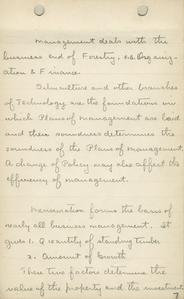 Management deals with the
business end of Forestry, e.g. Organiz-
ation & Finance.
Silviculture and other branches
of Technology are the foundations on
which Plans of management are laid
and their soundness determines the
soundness of the Plans of Management.
A change of Policy may also affect the
efficiency of management.
Mensuration forms the basis of
nearly all business management. It
gives 1. Quantity of standing timber
2. Amount of Growth
These two factors determine the
value of the property and the investment